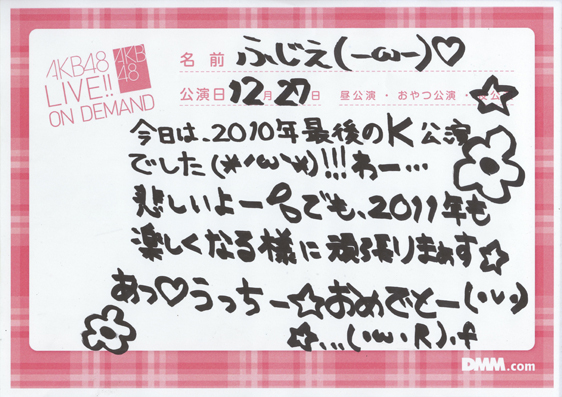 AKB48
LIVE!!
ON DEMAND
AKB
48
名前 ふじえ(-ω-)♡
公演日 12月27日 昼公演・おやつ公演・夜公
今日は、2010年最後のK公演
でした(*´ω`*)!!!わー…
悲しいよー。でも、2011年も
楽しくなる様に頑張りまぁす☆
あっ♡うっちー☆おめでとー(・v・)
☆...(・ω・R).f
DMM.com